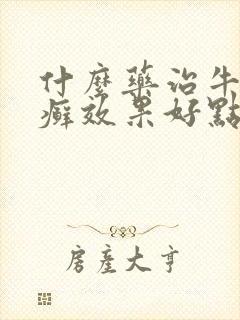 什麼藥治牛
癬效果好點
房產大亨